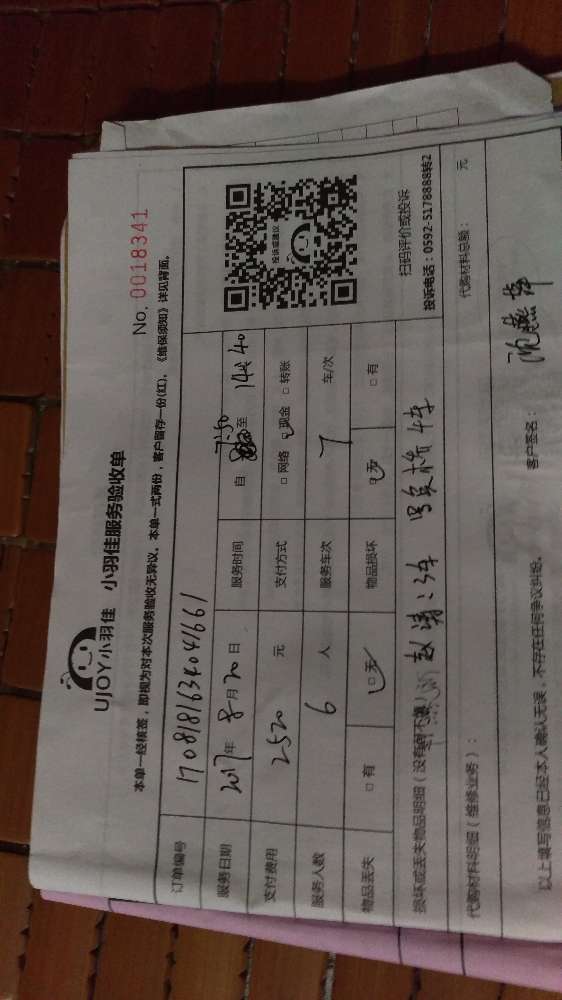 UJOY小羽佳 小羽佳服务验收单
No. 0018341
本单一经核签，即视为对本次服务验收无异议。本单一式两份，客户留存一份(红)，《维保须知》详见背面。
订单编号 1708181634041661
服务日期 2017年 8月20日 服务时间 自 7:50 至 14:40
支付费用 2520 元 支付方式 □网络 □现金 □转账
服务人数 6 人 服务车次 7 车/次
物品丢失 □有 □无 物品损坏 □无 □有
投诉或建议
扫码评价或投诉
投诉电话：0592-5178888转2
损坏或丢失物品明细（没有则不填）
代购材料明细（维修业务）： 代购材料总额： 元
以上填写信息已经本人确认无误，不存在任何争议纠纷。 客户签名：